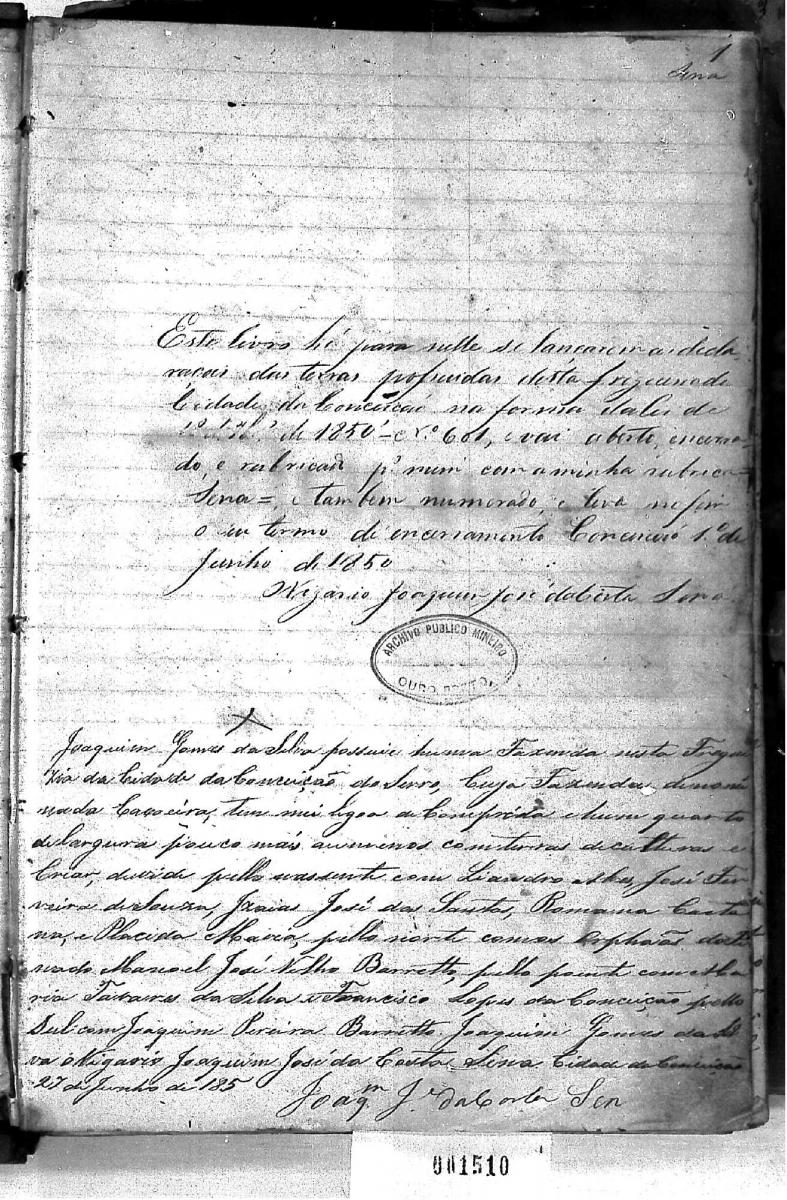 1
Sena
Este livro hé para nelle se lançarem as decla
raçois das terras possuidas desta freguesia de
Cidade da Conceição na forma da lei de
de 1850 e Nº 601, e vai aberto, encerra-
do, e rubricado pr mim com a minha rubrica=
Sena=, e tambem numerado, e leva no fim
o seu termo de encerramento Conceição 1º de
Junho de 1850
Vigario Joaquim José da Costa Sena
ARCHIVO PUBLICO MINEIRO
OURO PRETO
Joaquim Gomes da Silva possuie huma Fazenda nesta Fregue
zia da Cidade da Conceição do Serro, Cuja Fazenda denomi
nada Caxoeira, tem meia legoa de Comprido e hum quarto
de largura pouco mais ou menos com terras de culturas e
Criar, devide pello nascente com Leandro Alves, José Fer
reira de Souza, Izaias José dos Santos, Romana Caeta
na, e Placida Maria, pello norte com os Orphaõs do fi
nado Manoel José Velho Barretto, pello poente com Ma
ria Tavares da Silva e Francisco Lopes da Conceição pello
Sul com Joaquim Pereira Barretto, Joaquim Gomes da Sil
va o Vigario Joaquim José da Costa Sena Cidade da Conceição
27 de Junho de 185
Joaqm Je da Costa Sen
001510